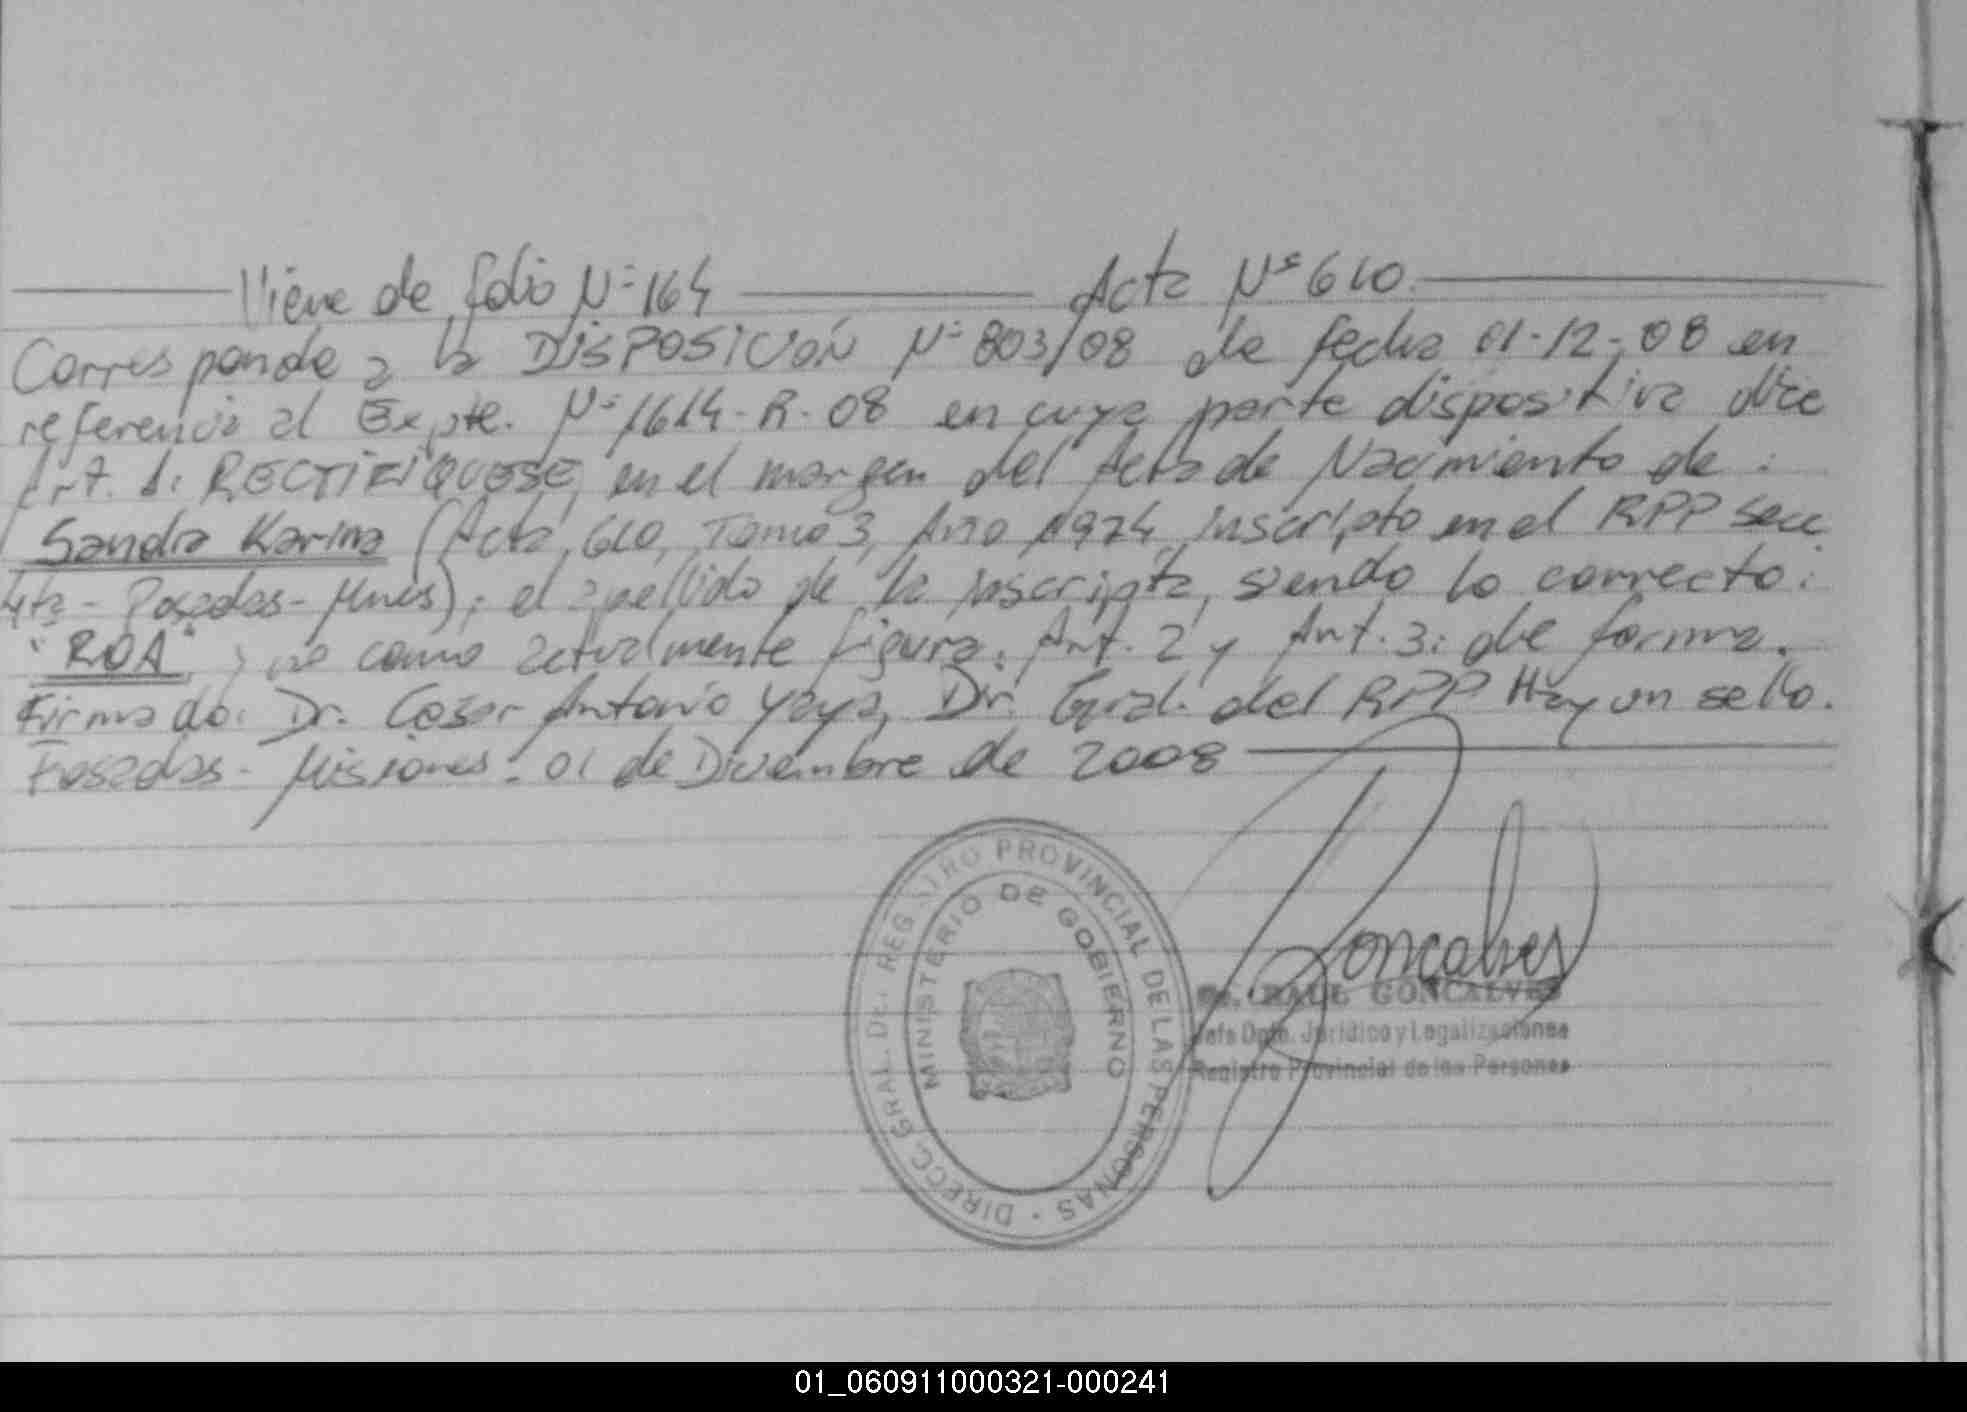 Viene de folio Nº 164 Acta Nº 610.
Corresponde a la DISPOSICIÓN Nº 803/08 de fecha 01-12-08 en
referencia al Expte. Nº 1614-R-08 en cuya parte dispositiva dice
Art. 1: RECTIFIQUESE, en el margen del Acta de Nacimiento de:
Sandra Karina (Acta 610, Tomo 3, Año 1974, inscripto en el RPP Secc
4ta - Posadas - Mnes); el apellido de la inscripta, siendo lo correcto:
"ROA" y no como actualmente figura. Art. 2 y Art. 3: de forma.
Firmado: Dr. Cesar Antonio Yaya, Dir. Gral. del RPP Hay un sello.
Posadas - Misiones. 01 de Diciembre de 2008
DIRECC. GRAL. DEL REGISTRO PROVINCIAL DE LAS PERSONAS
MINISTERIO DE GOBIERNO
Goncalves
RAUL GONCALVES
Jefe Dpto. Jurídico y Legalizaciones
Registro Provincial de las Personas
01_060911000321-000241